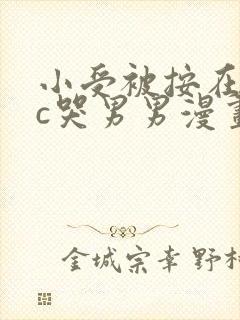 小受被按在
c哭男男漫畫
金城宗幸野村